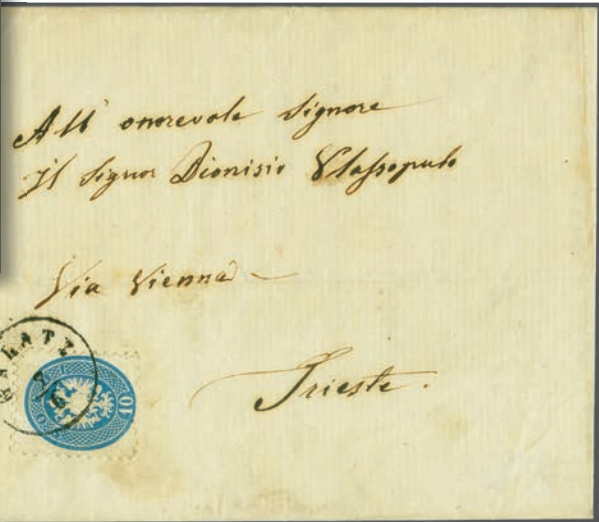 All' onorevole Signore
Il Signor Dionisio Vlassopulo
Via Vienna
Trieste.
GALATZ
2
6
10